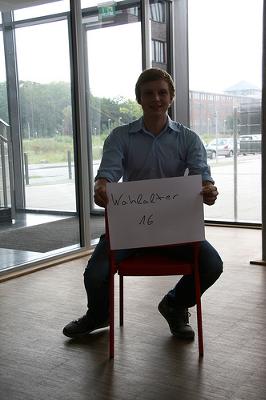 Wahlalter
16